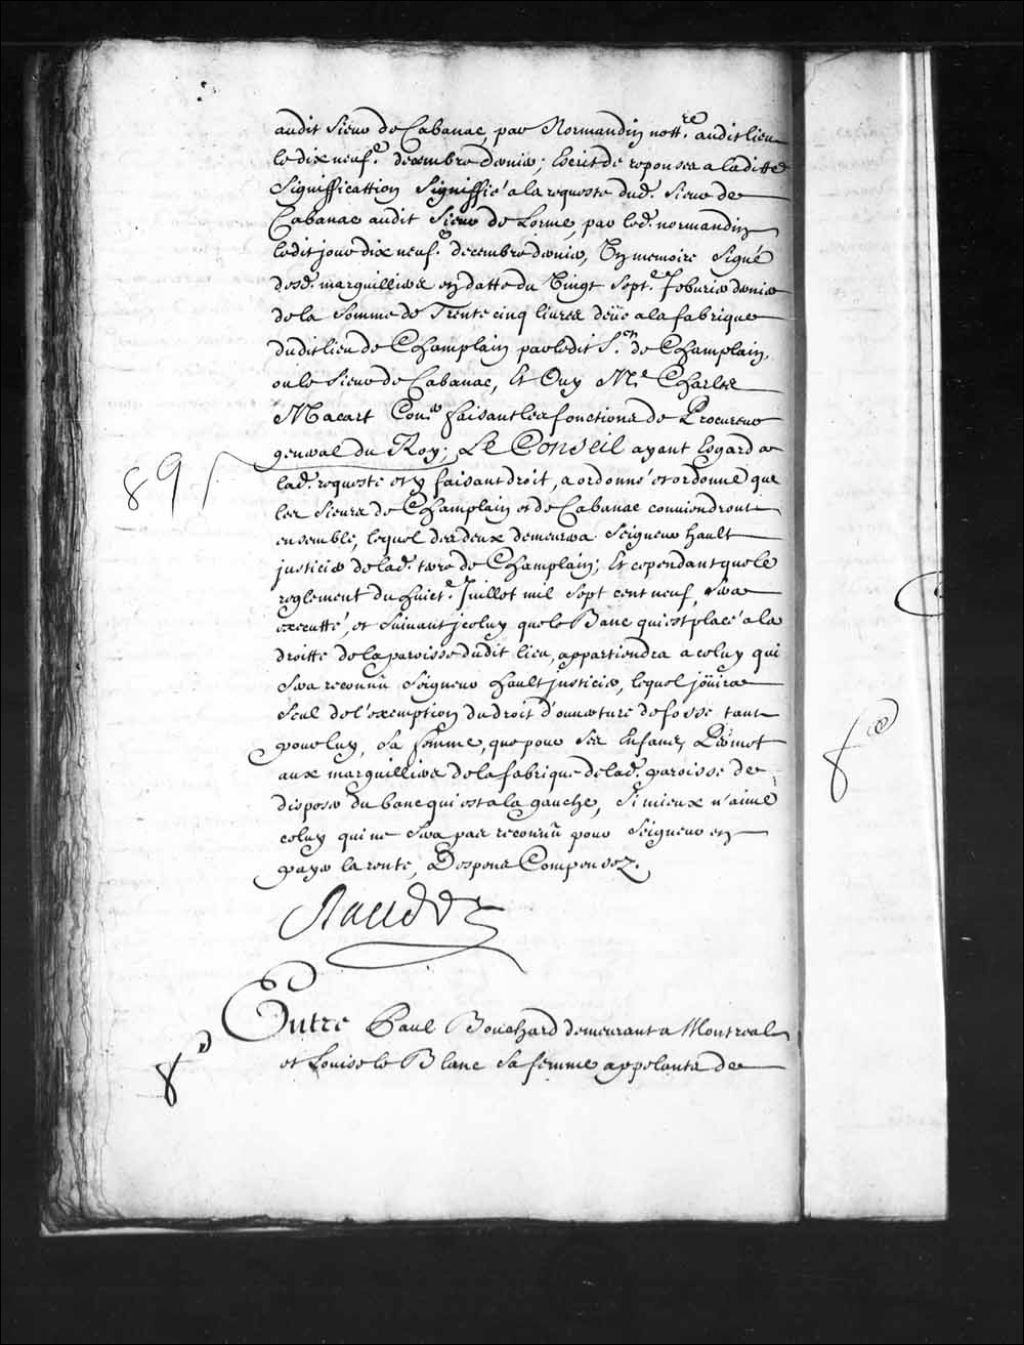 audit Sieur de Cabanac, par Normandin nott.re audit lieu
le dix neuf.e decembre dernier; Escrit de reponses a laditte
Signiffication Signiffié a la requeste dud. Sieur de
Cabanac audit Sieur de Lorme, par led. normandin
ledit jour dix neuf.e decembre dernier, Un memoire Signé
desd. marguilliers en datte du Vingt Sept.e feburier dernier
de la Somme de Trente cinq livres deüe a la fabrique
dudit lieu de Champlain par ledit S. de Champlain,
ou le Sieur de Cabanac, Et Ouy M.e Charles
Macart Con.er faisant les fonctions de Procureur
general du Roy; Le Conseil ayant Esgard a
lad. requeste et y faisant droit, a ordonné et ordonne que
les Sieurs de Champlain et de Cabanac conviendront
ensemble, lequel des deux demeurera Seigneur hault
justicier de lad. terre de Champlain; Et cependant que le
reglement du huict.e Juillet mil Sept cent neuf, Sera
executté, et Suivant jceluy que le Banc qui est placé a la
droitte de la paroisse dudit lieu, appartiendra a celuy qui
Sera reconnü Seigneur hault justicier, lequel jöuira
Seul de l'exemption du droit d'ouverture de fosse tant
pour luy, Sa femme, que pour Ses Enfans, Permet
aux marguilliers de la fabrique de lad. paroisse de
disposer du banc qui est a la gauche, Si mieux n'aime
celuy qui ne Sera pas reconnü pour Seigneur en
payer la rente, Despens Compensez.
Raudot
Entre Paul Bouchard demeurant a Montreal
et Louise le Blanc Sa femme appelants de